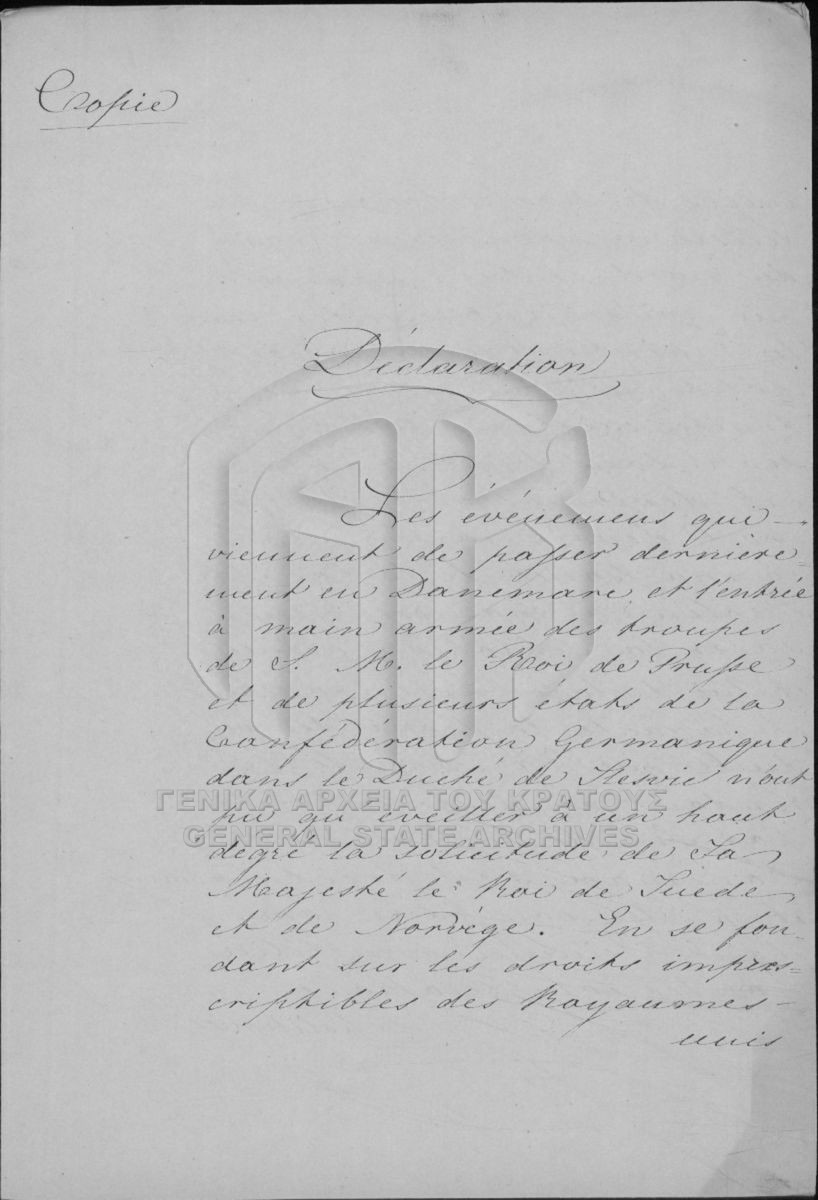 Copie
Déclaration
Les événemens qui
viennent de passer dernière-
ment en Danemarc et l'entrée
à main armée des troupes
de S. M. le Roi de Prusse
et de plusieurs états de la
Confédération Germanique
dans le Duché de Slesvic n'ont
pu qu'éveiller à un haut
degré la solicitude de Sa
Majesté le Roi de Suède
et de Norvége. En se fon-
dant sur les droits impres-
criptibles des Royaumes-
unis
ΓΕΝΙΚΑ ΑΡΧΕΙΑ ΤΟΥ ΚΡΑΤΟΥΣ
GENERAL STATE ARCHIVES